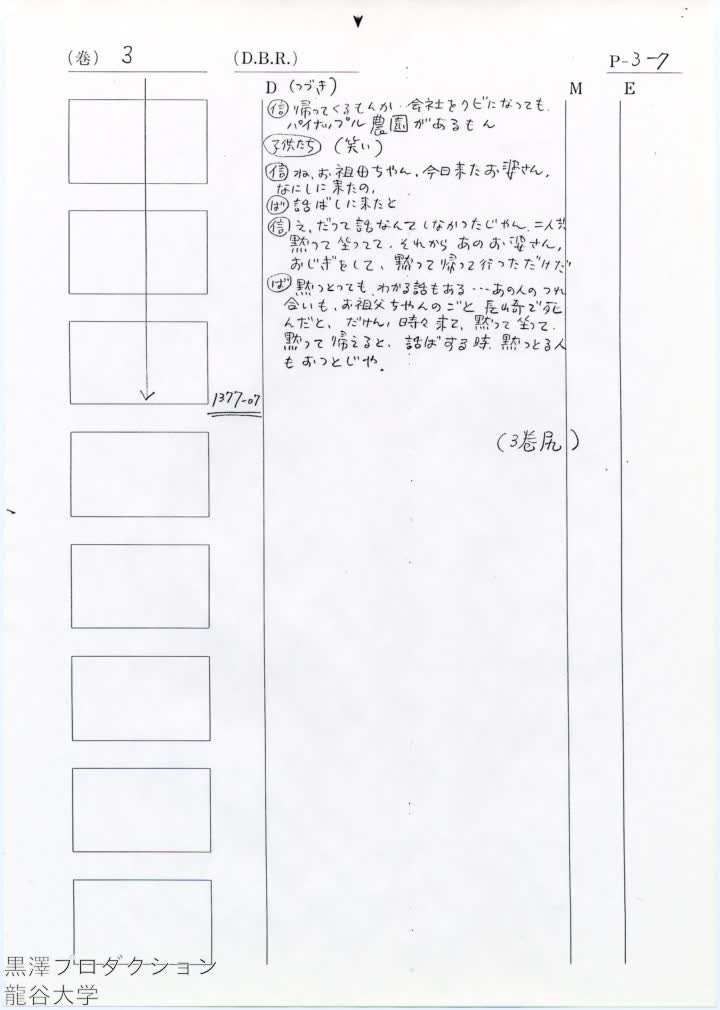 (巻) 3 (D.B.R.) P-3-7
D (つづき) M E
(信) 帰ってくるもんか、会社をクビになっても、
パイナップル農園があるもん
(子供たち) (笑い)
(信) ね、お祖母ちゃん、今日来たお婆さん、
なにしに来たの、
(ば) 話ばしに来たと
(信) え、だって話なんてしなかったじゃん、二人共
黙って坐ってて、それからあのお婆さん、
おじぎをして、黙って帰って行っただけだ
(ば) 黙っとっても、わかる話もある…あの人のつれ
合いも、お祖父ちゃんのごと長崎で死
んだと、だけん、時々来て、黙って坐って、
黙って帰えると、話ばする時、黙っとる人
もおっとじゃ。
1377-07
(3巻尻)
黒澤プロダクション
龍谷大学